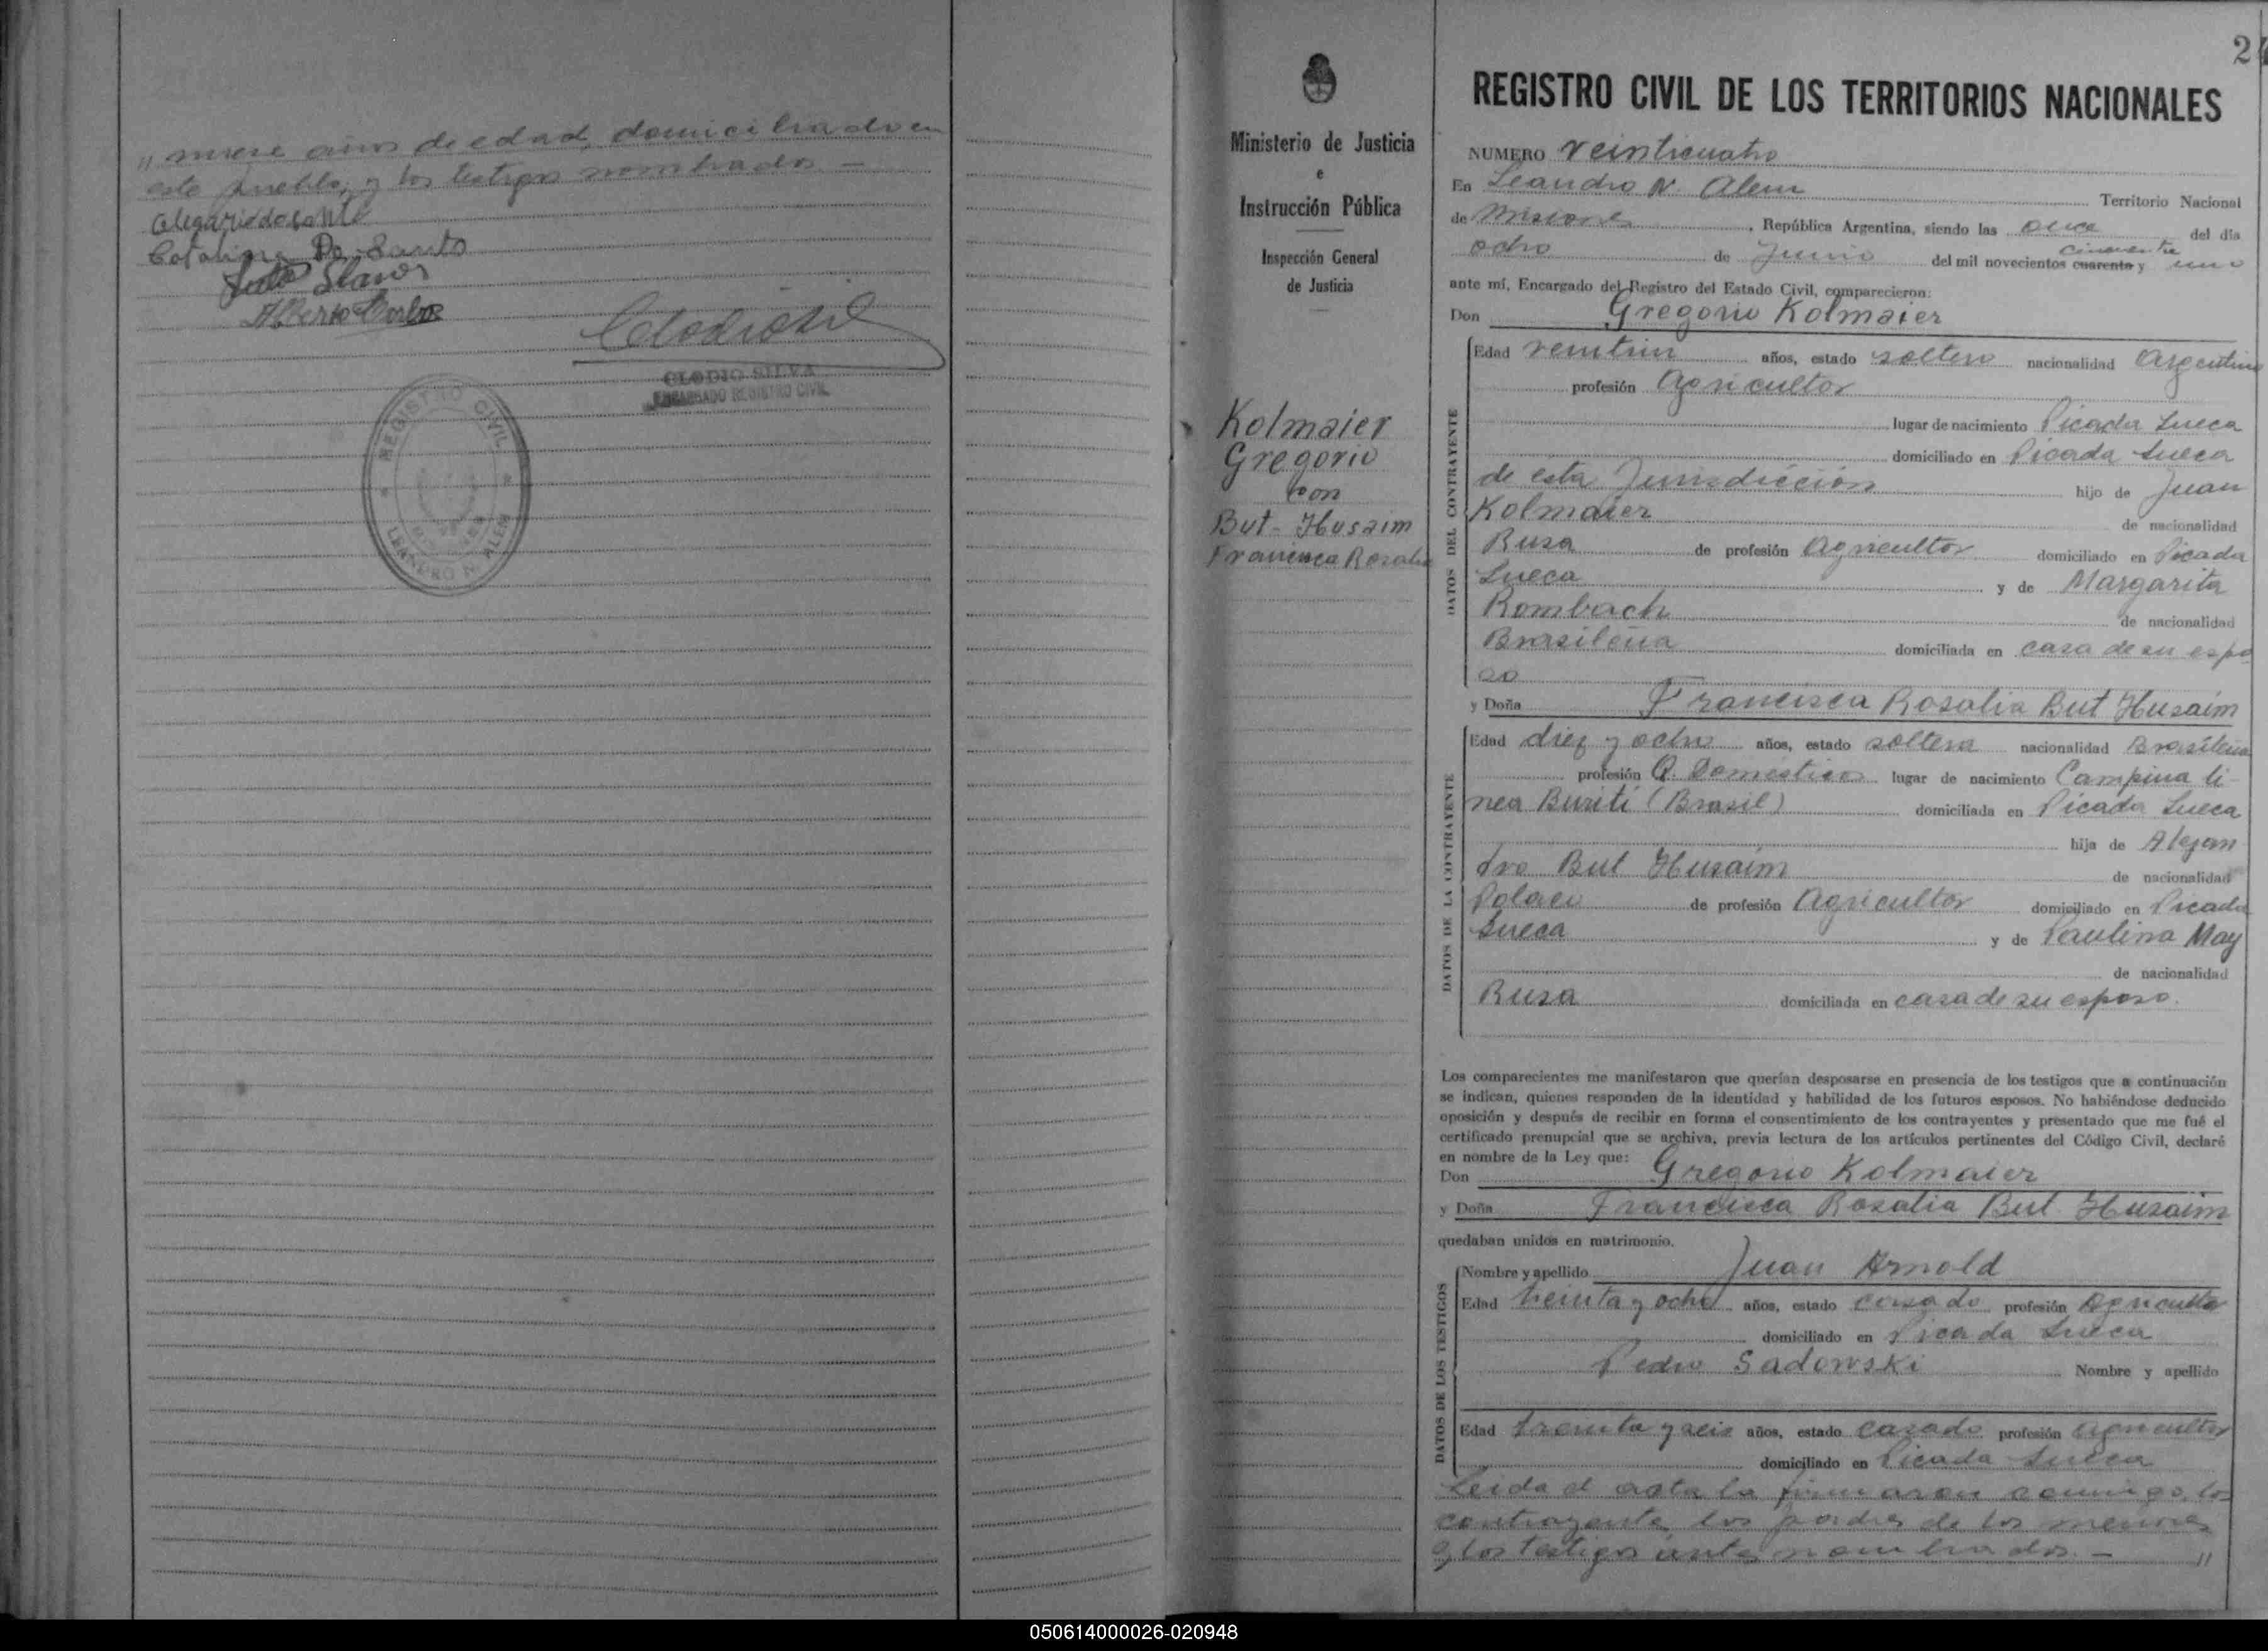 " nueve años de edad, domiciliado en
este pueblo; y los testigos nombrados. —
Catalina Do Santo
Alberto
CLODIO SILVA
ENCARGADO REGISTRO CIVIL
REGISTRO CIVIL
MISIONES
LEANDRO N. ALEM
Ministerio de Justicia
e
Instrucción Pública
Inspección General
de Justicia
Kolmaier
Gregorio
con
But-Husaim
Francisca Rosalia
2
REGISTRO CIVIL DE LOS TERRITORIOS NACIONALES
NUMERO veinticuatro
En Leandro N. Alem Territorio Nacional
de Misiones, República Argentina, siendo las once del día
ocho de Junio del mil novecientos cuarenta y cincuenta uno
ante mí, Encargado del Registro del Estado Civil, comparecieron:
Don Gregorio Kolmaier
DATOS DEL CONTRAYENTE
Edad años, estado soltero nacionalidad Argentino
profesión Agricultor
lugar de nacimiento Picada Sueca
domiciliado en Picada Sueca
de esta Jurisdicción hijo de Juan
Kolmaier de nacionalidad
Rusa de profesión Agricultor domiciliado en Picada
Sueca y de Margarita
Rombach de nacionalidad
Brasileña domiciliada en casa de su espo
so
y Doña Francisca Rosalia But Husaim
DATOS DE LA CONTRAYENTE
Edad diez y ocho años, estado soltera nacionalidad Brasileña
profesión Q. Domésticos lugar de nacimiento Campina li-
nea Buriti (Brasil) domiciliada en Picada Sueca
hija de Alejan
dro But Husaim de nacionalidad
Polaco de profesión Agricultor domiciliado en Picada
Sueca y de Paulina May
de nacionalidad
Rusa domiciliada en casa de su esposo.
Los comparecientes me manifestaron que querían desposarse en presencia de los testigos que a continuación
se indican, quienes responden de la identidad y habilidad de los futuros esposos. No habiéndose deducido
oposición y después de recibir en forma el consentimiento de los contrayentes y presentado que me fué el
certificado prenupcial que se archiva, previa lectura de los artículos pertinentes del Código Civil, declaré
en nombre de la Ley que:
Don Gregorio Kolmaier
y Doña Francisca Rosalia But Husaim
quedaban unidos en matrimonio.
DATOS DE LOS TESTIGOS
Nombre y apellido Juan Arnold
Edad treinta y ocho años, estado casado profesión Agricultor
domiciliado en Picada Sueca
Pedro Sadowski Nombre y apellido
Edad treinta y seis años, estado casado profesión agricultor
domiciliado en Picada Sueca
Leida el acta la firmaron conmigo los
contrayentes los padres de los menores
y los testigos antes nombrados. — "
050614000026-020948